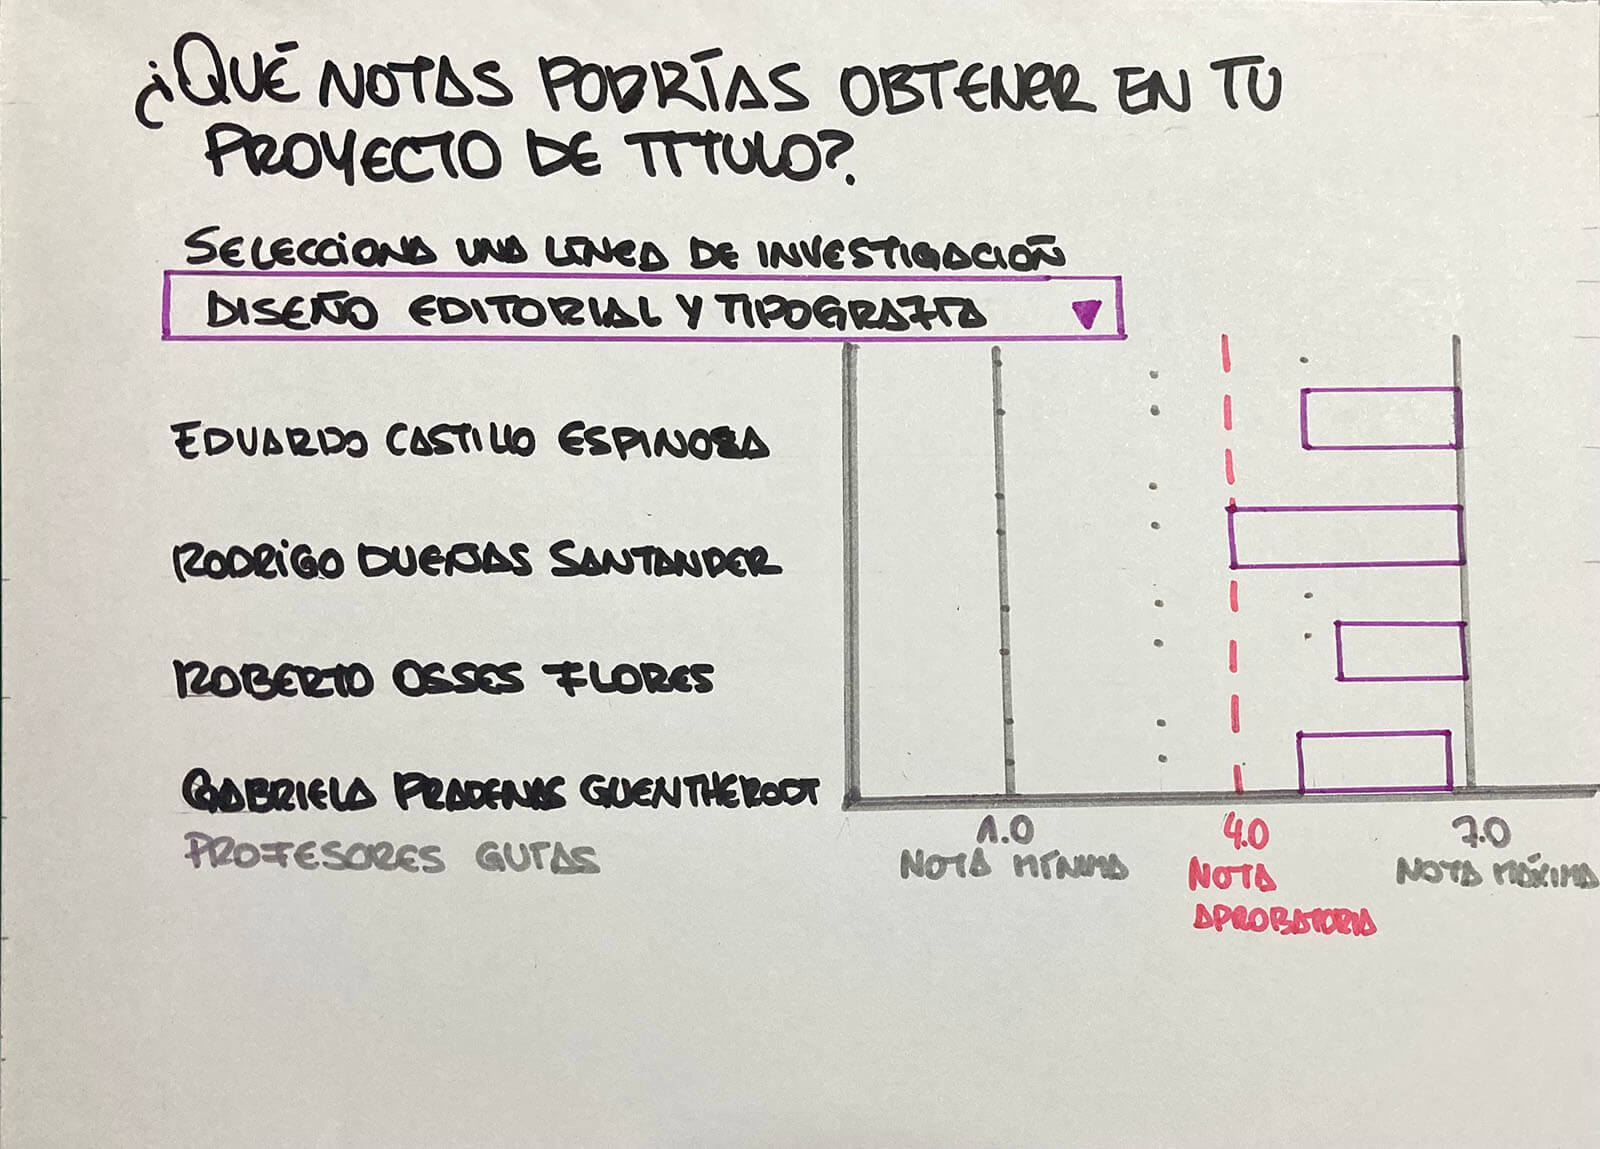 ¿QUÉ NOTAS PODRÍAS OBTENER EN TU
PROYECTO DE TÍTULO?
SELECCIONA UNA LÍNEA DE INVESTIGACIÓN
DISEÑO EDITORIAL Y TIPOGRAFÍA
EDUARDO CASTILLO ESPINOZA
RODRIGO DUEÑAS SANTANDER
ROBERTO OSSES FLORES
GABRIELA PRADENAS GUENTHERODT
PROFESORES GUÍAS
1.0 4.0 7.0
NOTA MÍNIMA NOTA NOTA MÁXIMA
APROBATORIA